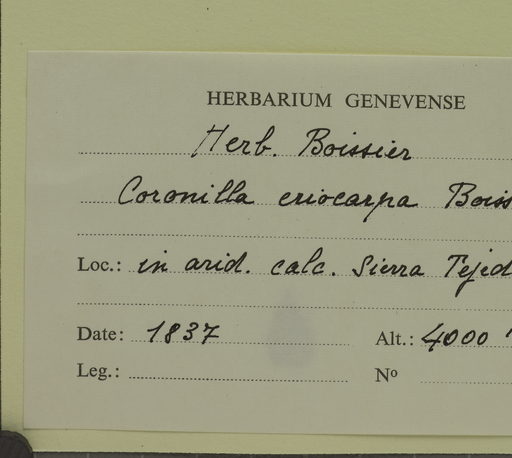 HERBARIUM GENEVENSE
Herb. Boissier
Coronilla eriocarpa Boiss
Loc.: in arid. calc. Sierra Tejed
Date: 1837 Alt.: 4000 '
Leg.: Nº